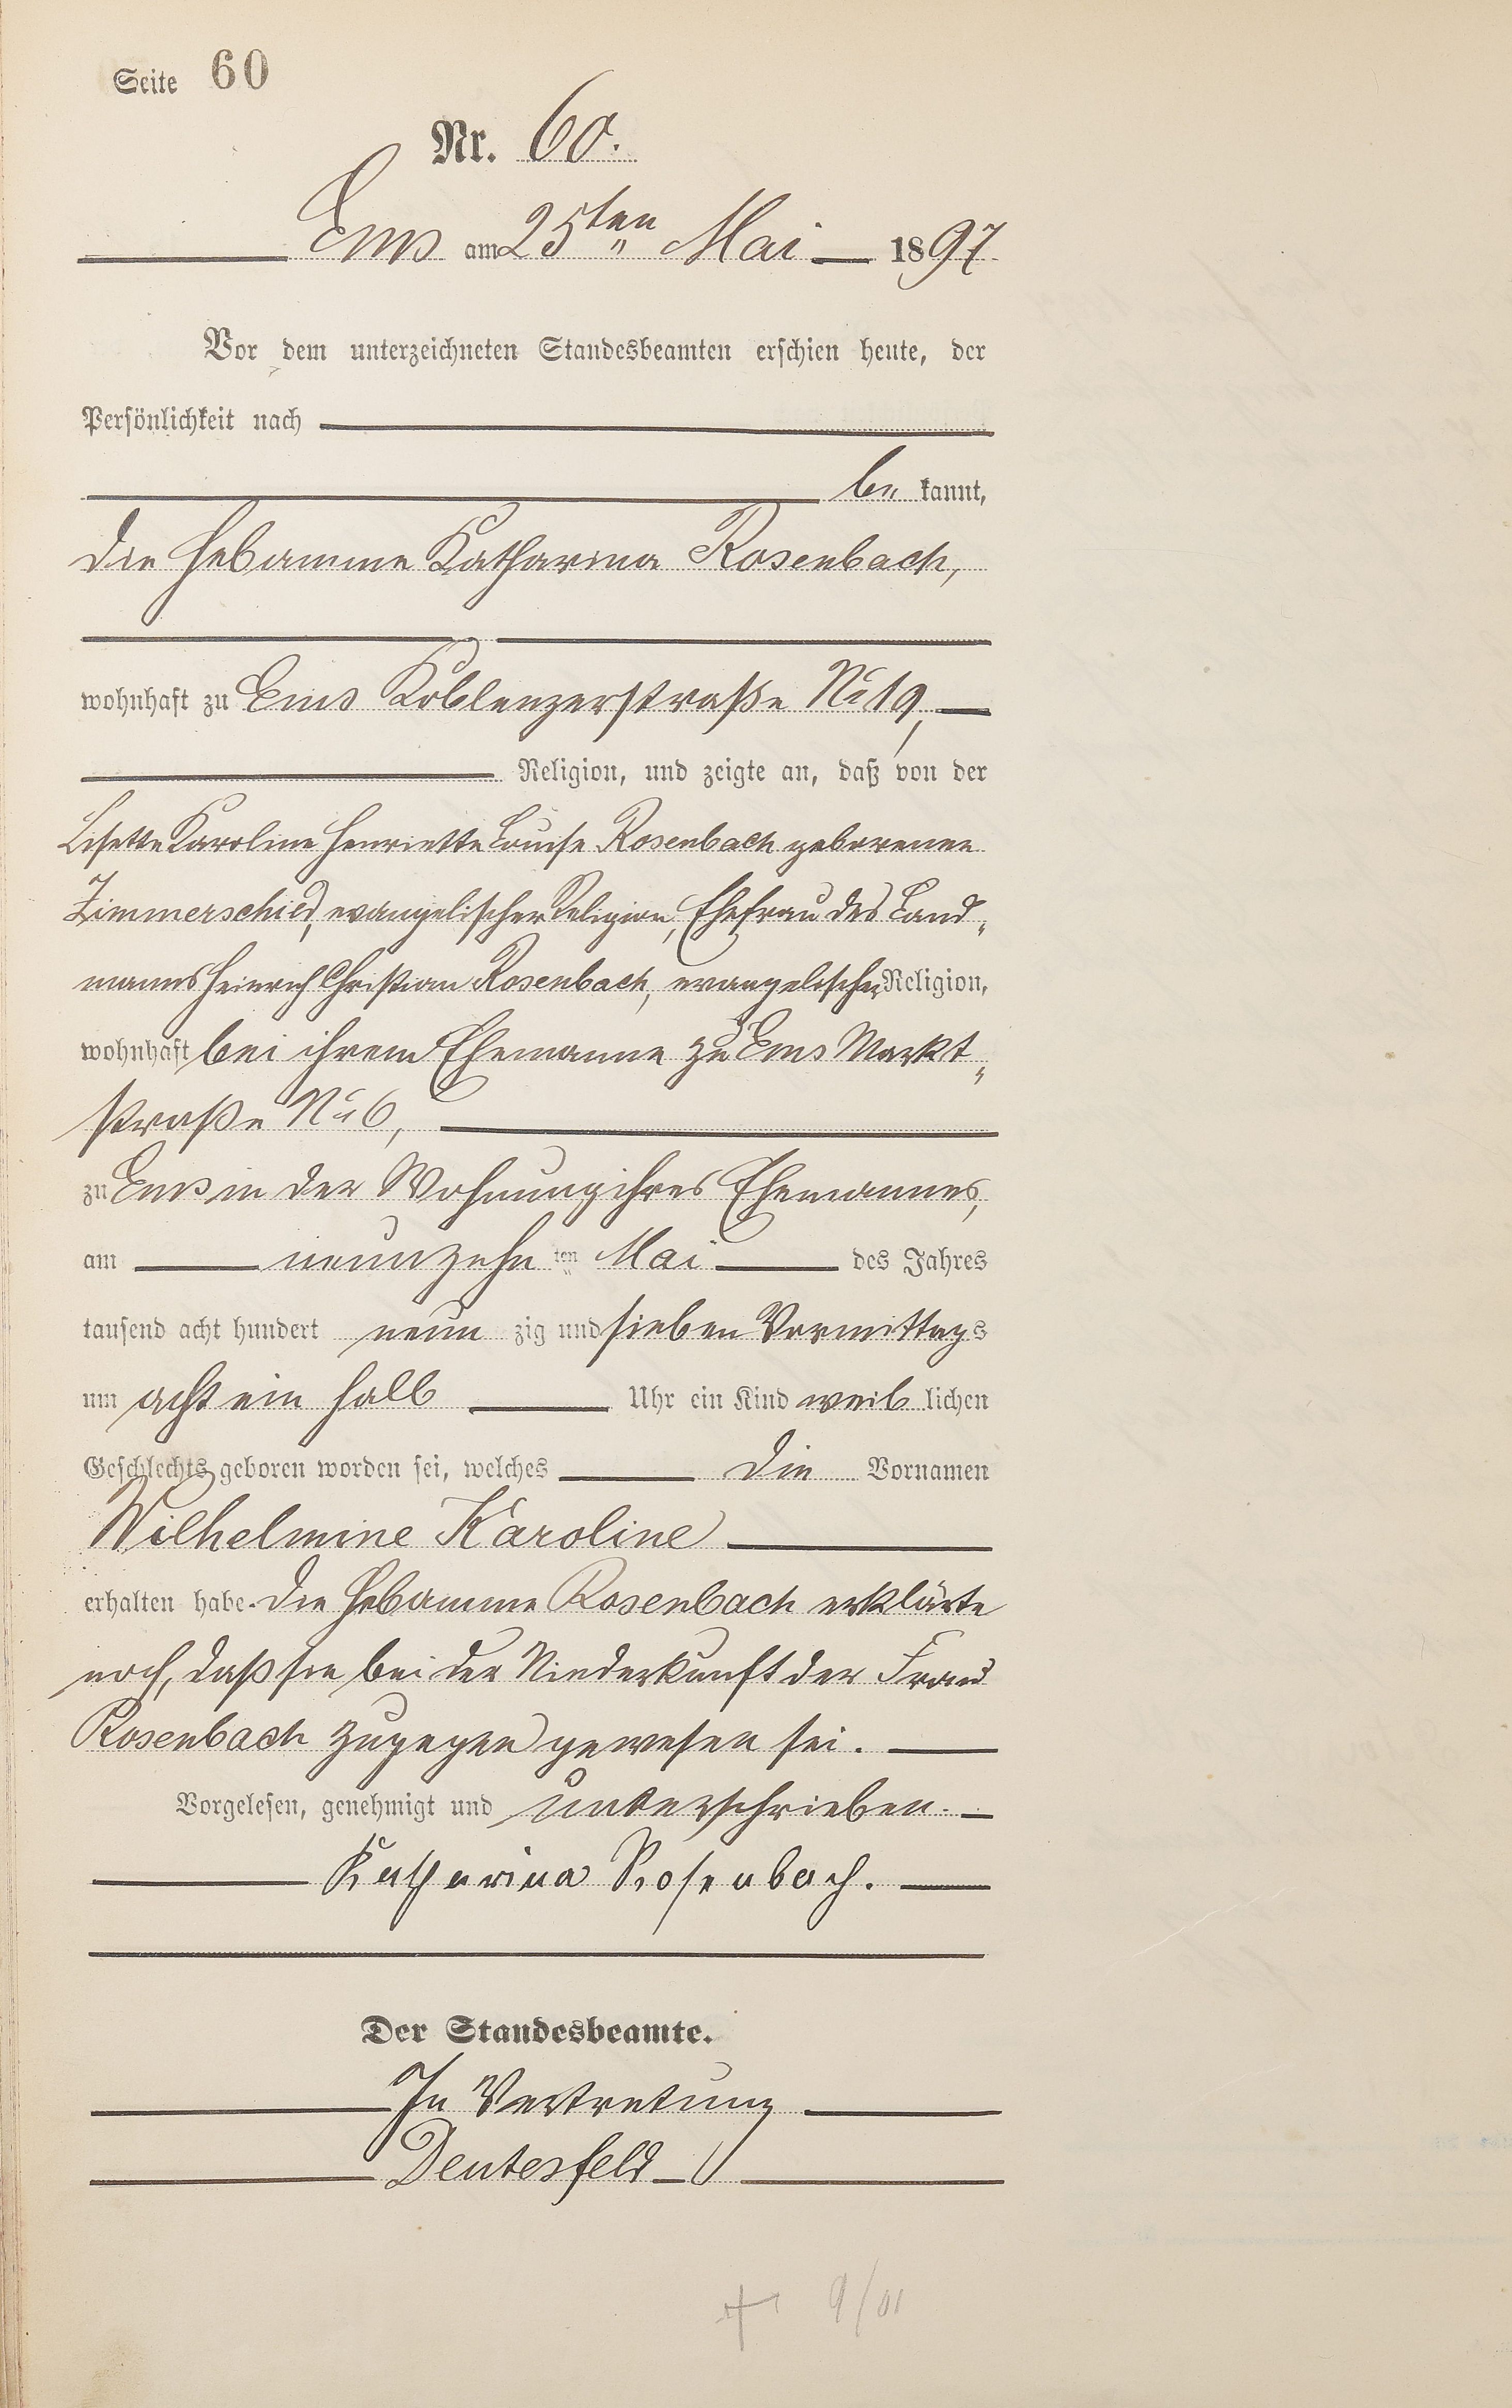 Seite 60
Nr. 60.
Ems am 25ten Mai 1897.
Vor dem unterzeichneten Standesbeamten erschien heute, der
Persönlichkeit nach
be kannt,
die Hebamme Katharina Rosenbach,
wohnhaft zu Ems Koblenzerstraße No 19,
Religion, und zeigte an, daß von der
Lisette Karoline Henriette Louise Rosenbach geborenen
Zimmerschied, evangelischer Religion, Ehefrau des Land„
manns Heinrich Christian Rosenbach, evangelischer Religion,
wohnhaft bei ihrem Ehemanne zu Ems Markt„
straße No 6,
zu Ems in der Wohnung ihres Ehemannes,
am neunzehn ten Mai des Jahres
tausend acht hundert neun zig und sieben Vormittags
um acht ein halb Uhr ein Kind weib lichen
Geschlechts geboren worden sei, welches die Vornamen
Wilhelmine Karoline
erhalten habe. Die Hebamme Rosenbach erklärte
noch, daß sie bei der Niederkunft der Frau
Rosenbach zugegen gewesen sei.
Vorgelesen, genehmigt und unterschrieben.
Katharina Rosenbach.
Der Standesbeamte.
In Vertretung
Deutesfeld
+ 9/01